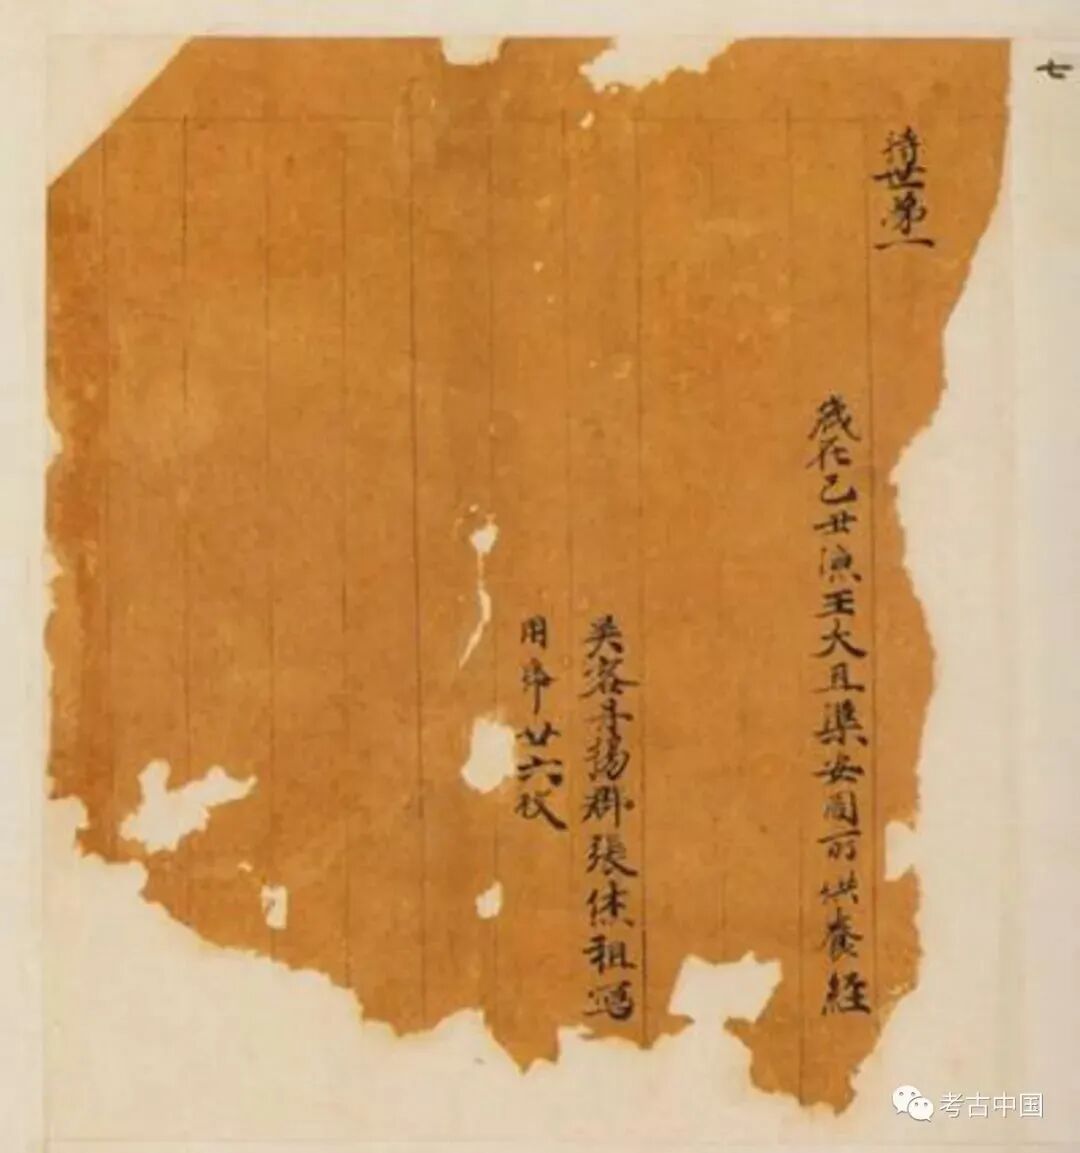 七
持世第一
歲在己丑涼王大且渠安周所供養經
吳客丹揚郡張烋祖寫
用帋廿六枚
考古中国